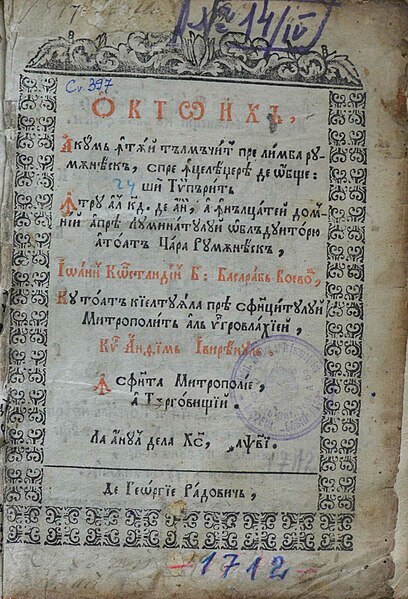 № 14/IV
C. 397
Ѻ҆КТѠИ҆ХЪ,
А҆кумь ꙟ҆тѫй тълмъчит пре лимба ру-
мѫнѣскъ, спре ꙟ҆целѣџерѣ де ѡ҆бще:
ши Тѵпърить
Ꙟ҆тру ал кд. де а҆ни, а ꙟ҆нълцатей дом-
ний а҆пре луминатулуй ѡ҆блъдуиторю
а тоатъ Цара Румѫнѣскъ,
І҆ѡа́нй Кѡ҆стандін Б: Басарабъ Воево,
Ку тоатъ киелтуѧла прѣ сфинцитулуй
Митрополить аль Оу҆гровлахіей,
Кѵ҆ Анѳімь Івирѣнул.
Ꙟ сфнта Митрополіе,
ꙟ Тѫрговищи.
Ла анул дела Хс, ҂аѱві.
Де Геѡ́ргіе Ра́довичь,
-1712-